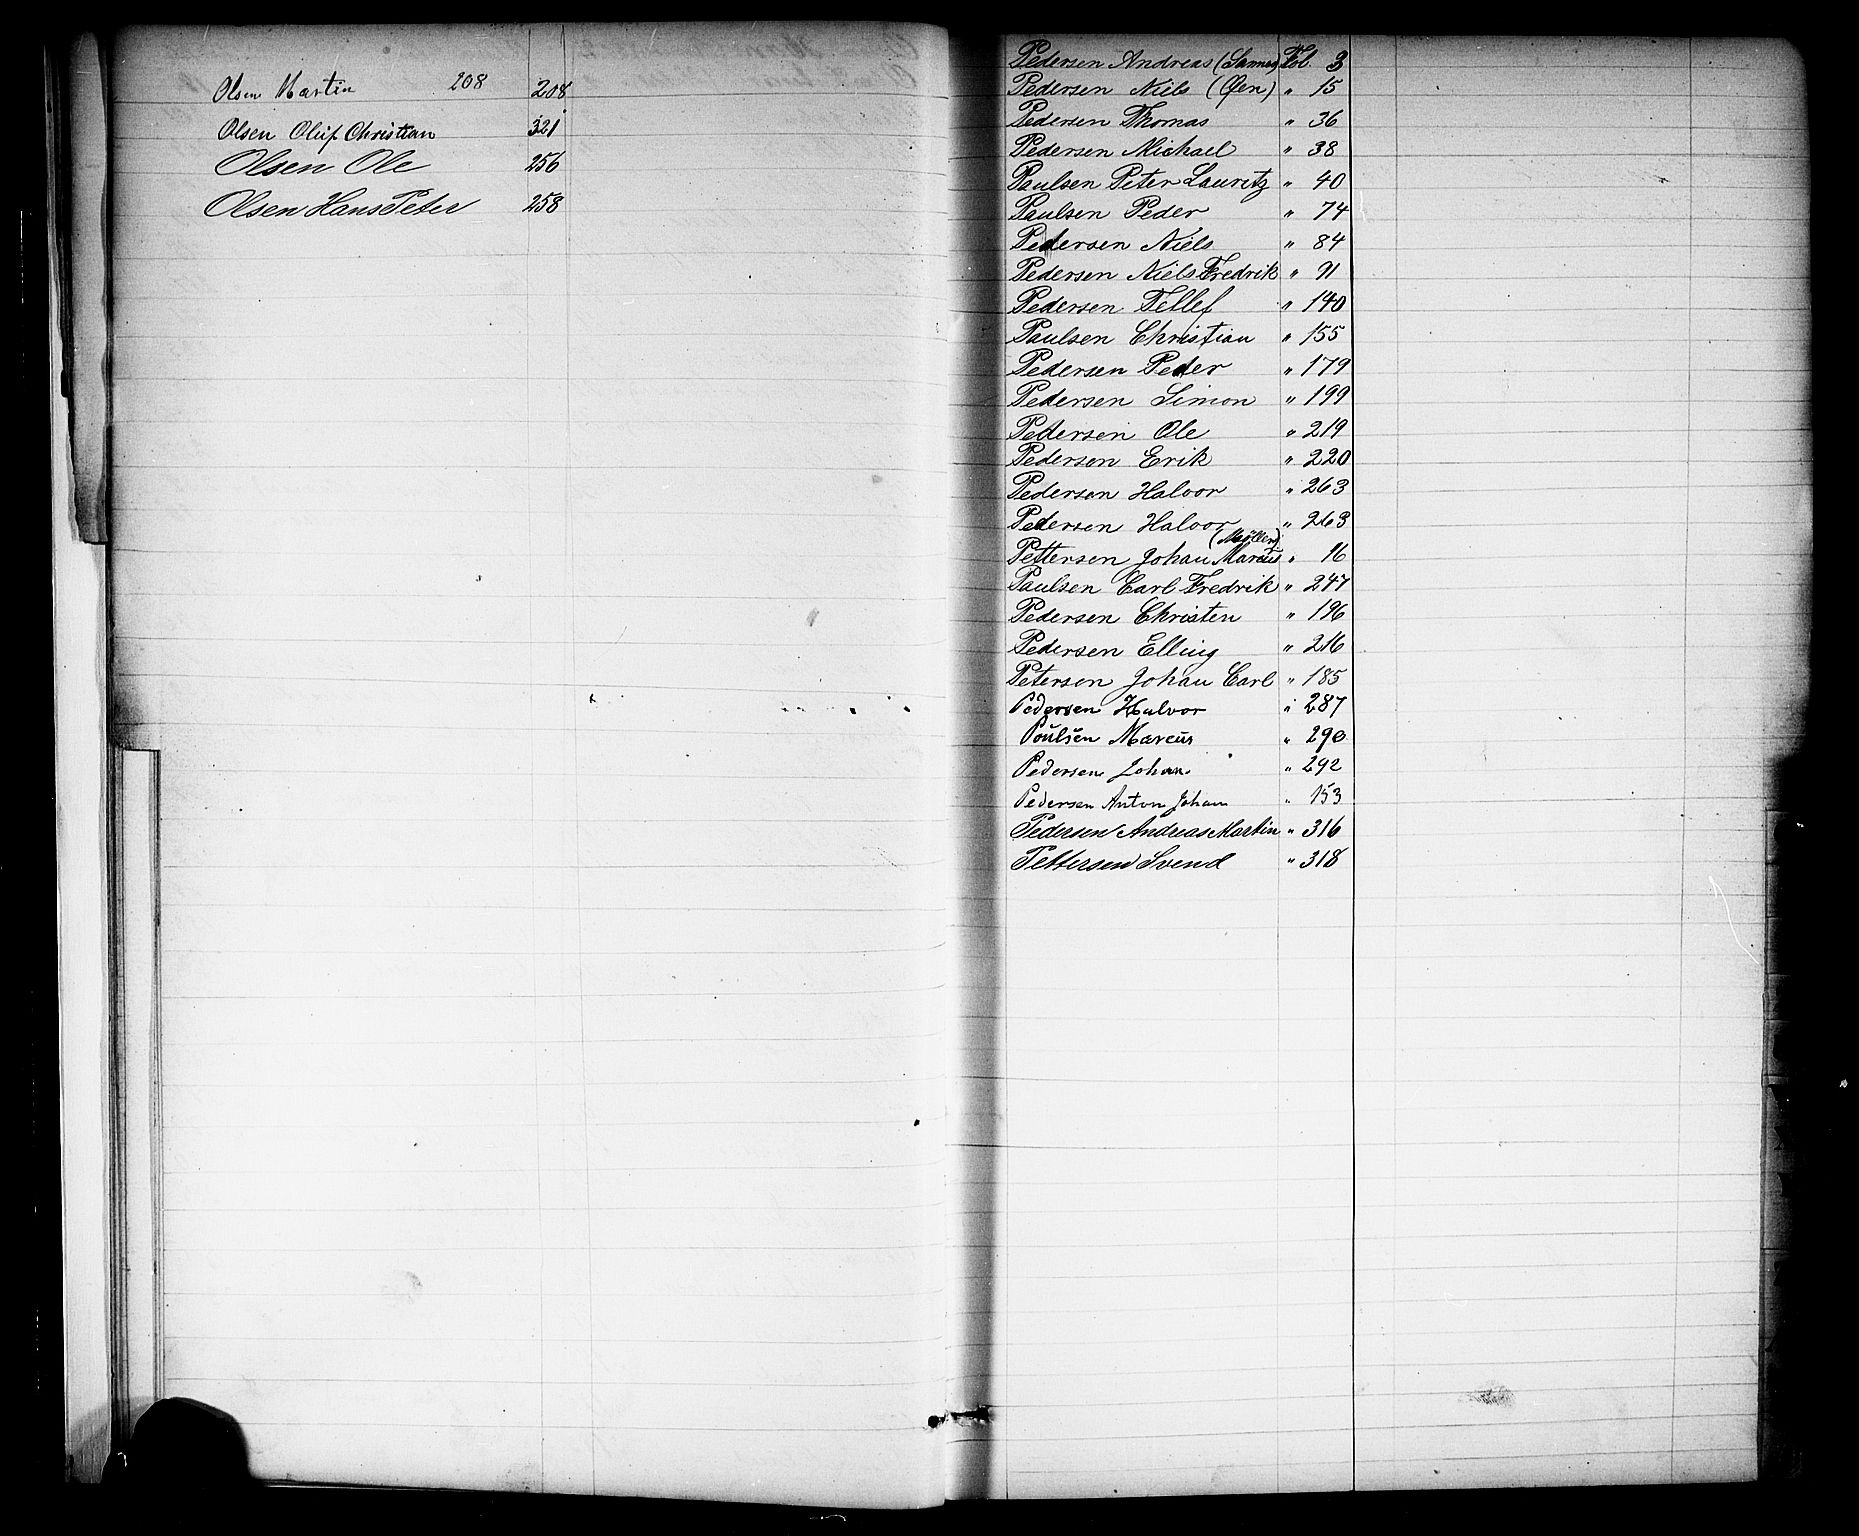 Olsen Martin 208 208
Olsen Oluf Christian 321
Olsen Ole 256
Olsen Hans Peter 258
Pedersen Andreas (Sannes) Fol. 3
Pedersen Niels (Øen) " 15
Pedersen Thomas " 36
Pedersen Michael " 38
Paulsen Peter Lauritz " 40
Paulsen Peder " 74
Pedersen Niels " 84
Pedersen Niels Fredrik " 91
Pedersen Tellef " 140
Paulsen Christian " 155
Pedersen Peder " 179
Pedersen Simon " 199
Pedersen Ole " 219
Pederson Erik " 220
Pedersen Halvor " 263
Pedersen Halvor " 263
(Møller)
Petterson Johan Marcus " 16
Paulsen Carl Fredrik " 247
Pedersen Christen " 196
Pedersen Elling " 216
Peterson Johan Carl " 185
Pedersen Halvor " 287
Poulsen Marcus " 290
Pedersen Johan " 292
Pedersen Anton Johan " 153
Pedersen Andreas Martin " 316
Pettersen Svend " 318